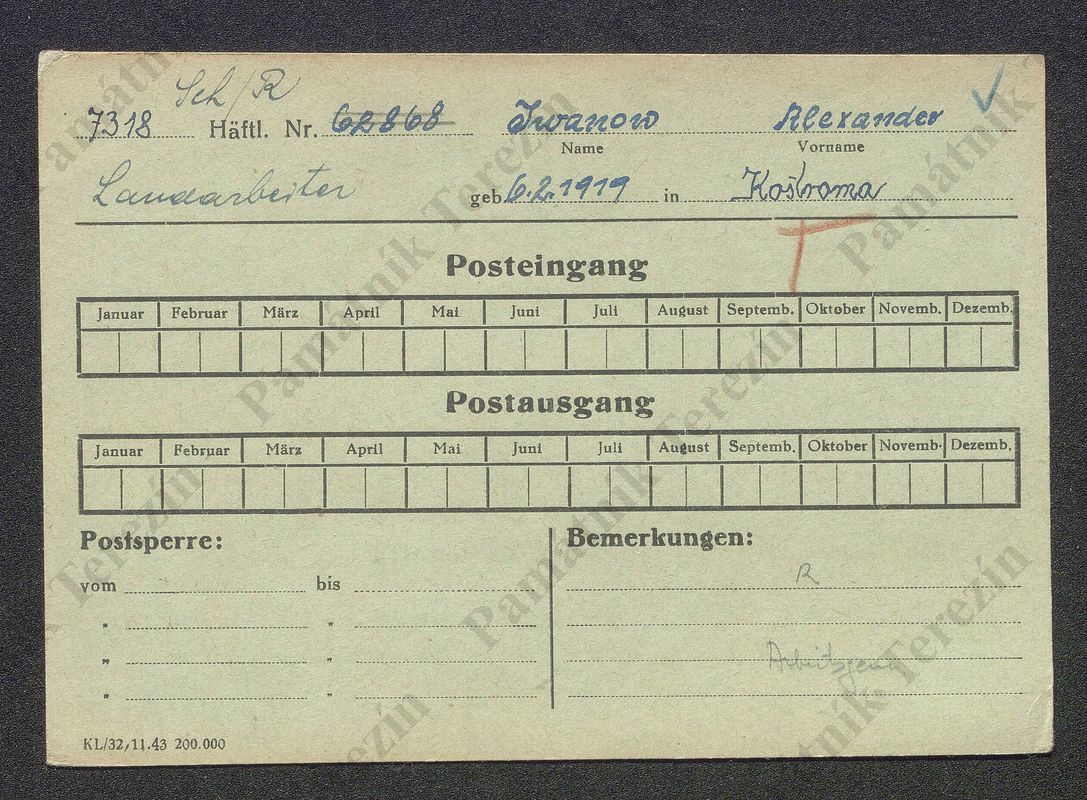 Sch/R
7318 Häftl. Nr. 62868 Iwanow Alexander
Name Vorname
Landarbeiter geb. 6.2.1919 in Kostroma
Posteingang
Januar Februar März April Mai Juni Juli August Septemb. Oktober Novemb. Dezemb.
Postausgang
Januar Februar März April Mai Juni Juli August Septemb. Oktober Novemb. Dezemb.
Postsperre: Bemerkungen:
vom bis R
" "
" " 
" "
KL/32,11.43 200.000
Památník Terezín